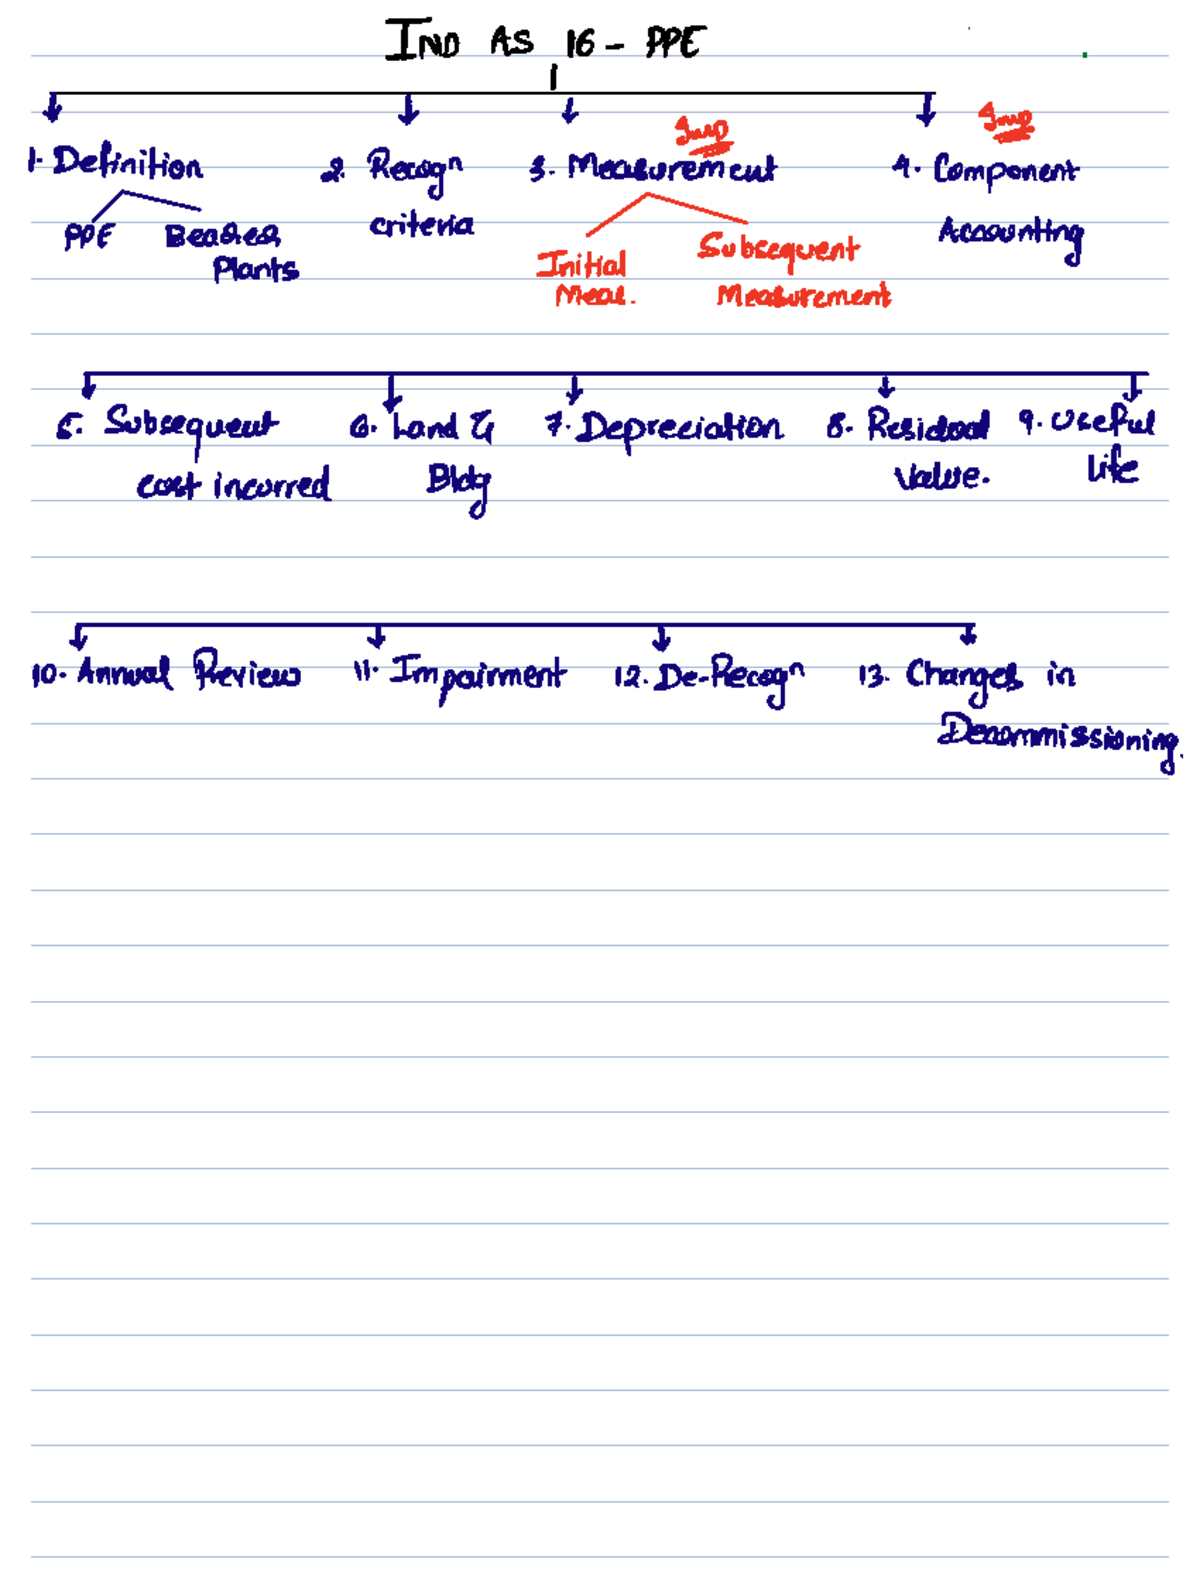 IND AS 16 - PPE
Imp Imp
1. Definition 2. Recogn 3. Measurement 4. Component
criteria Accounting
PPE Bearer Initial Subsequent
Plants Meas. Measurement
5. Subsequent 6. Land & 7. Depreciation 8. Residual 9. Useful
cost incurred Bldg Value. life
10. Annual Review 11. Impairment 12. De-Recogn 13. Changes in
Decommissioning.